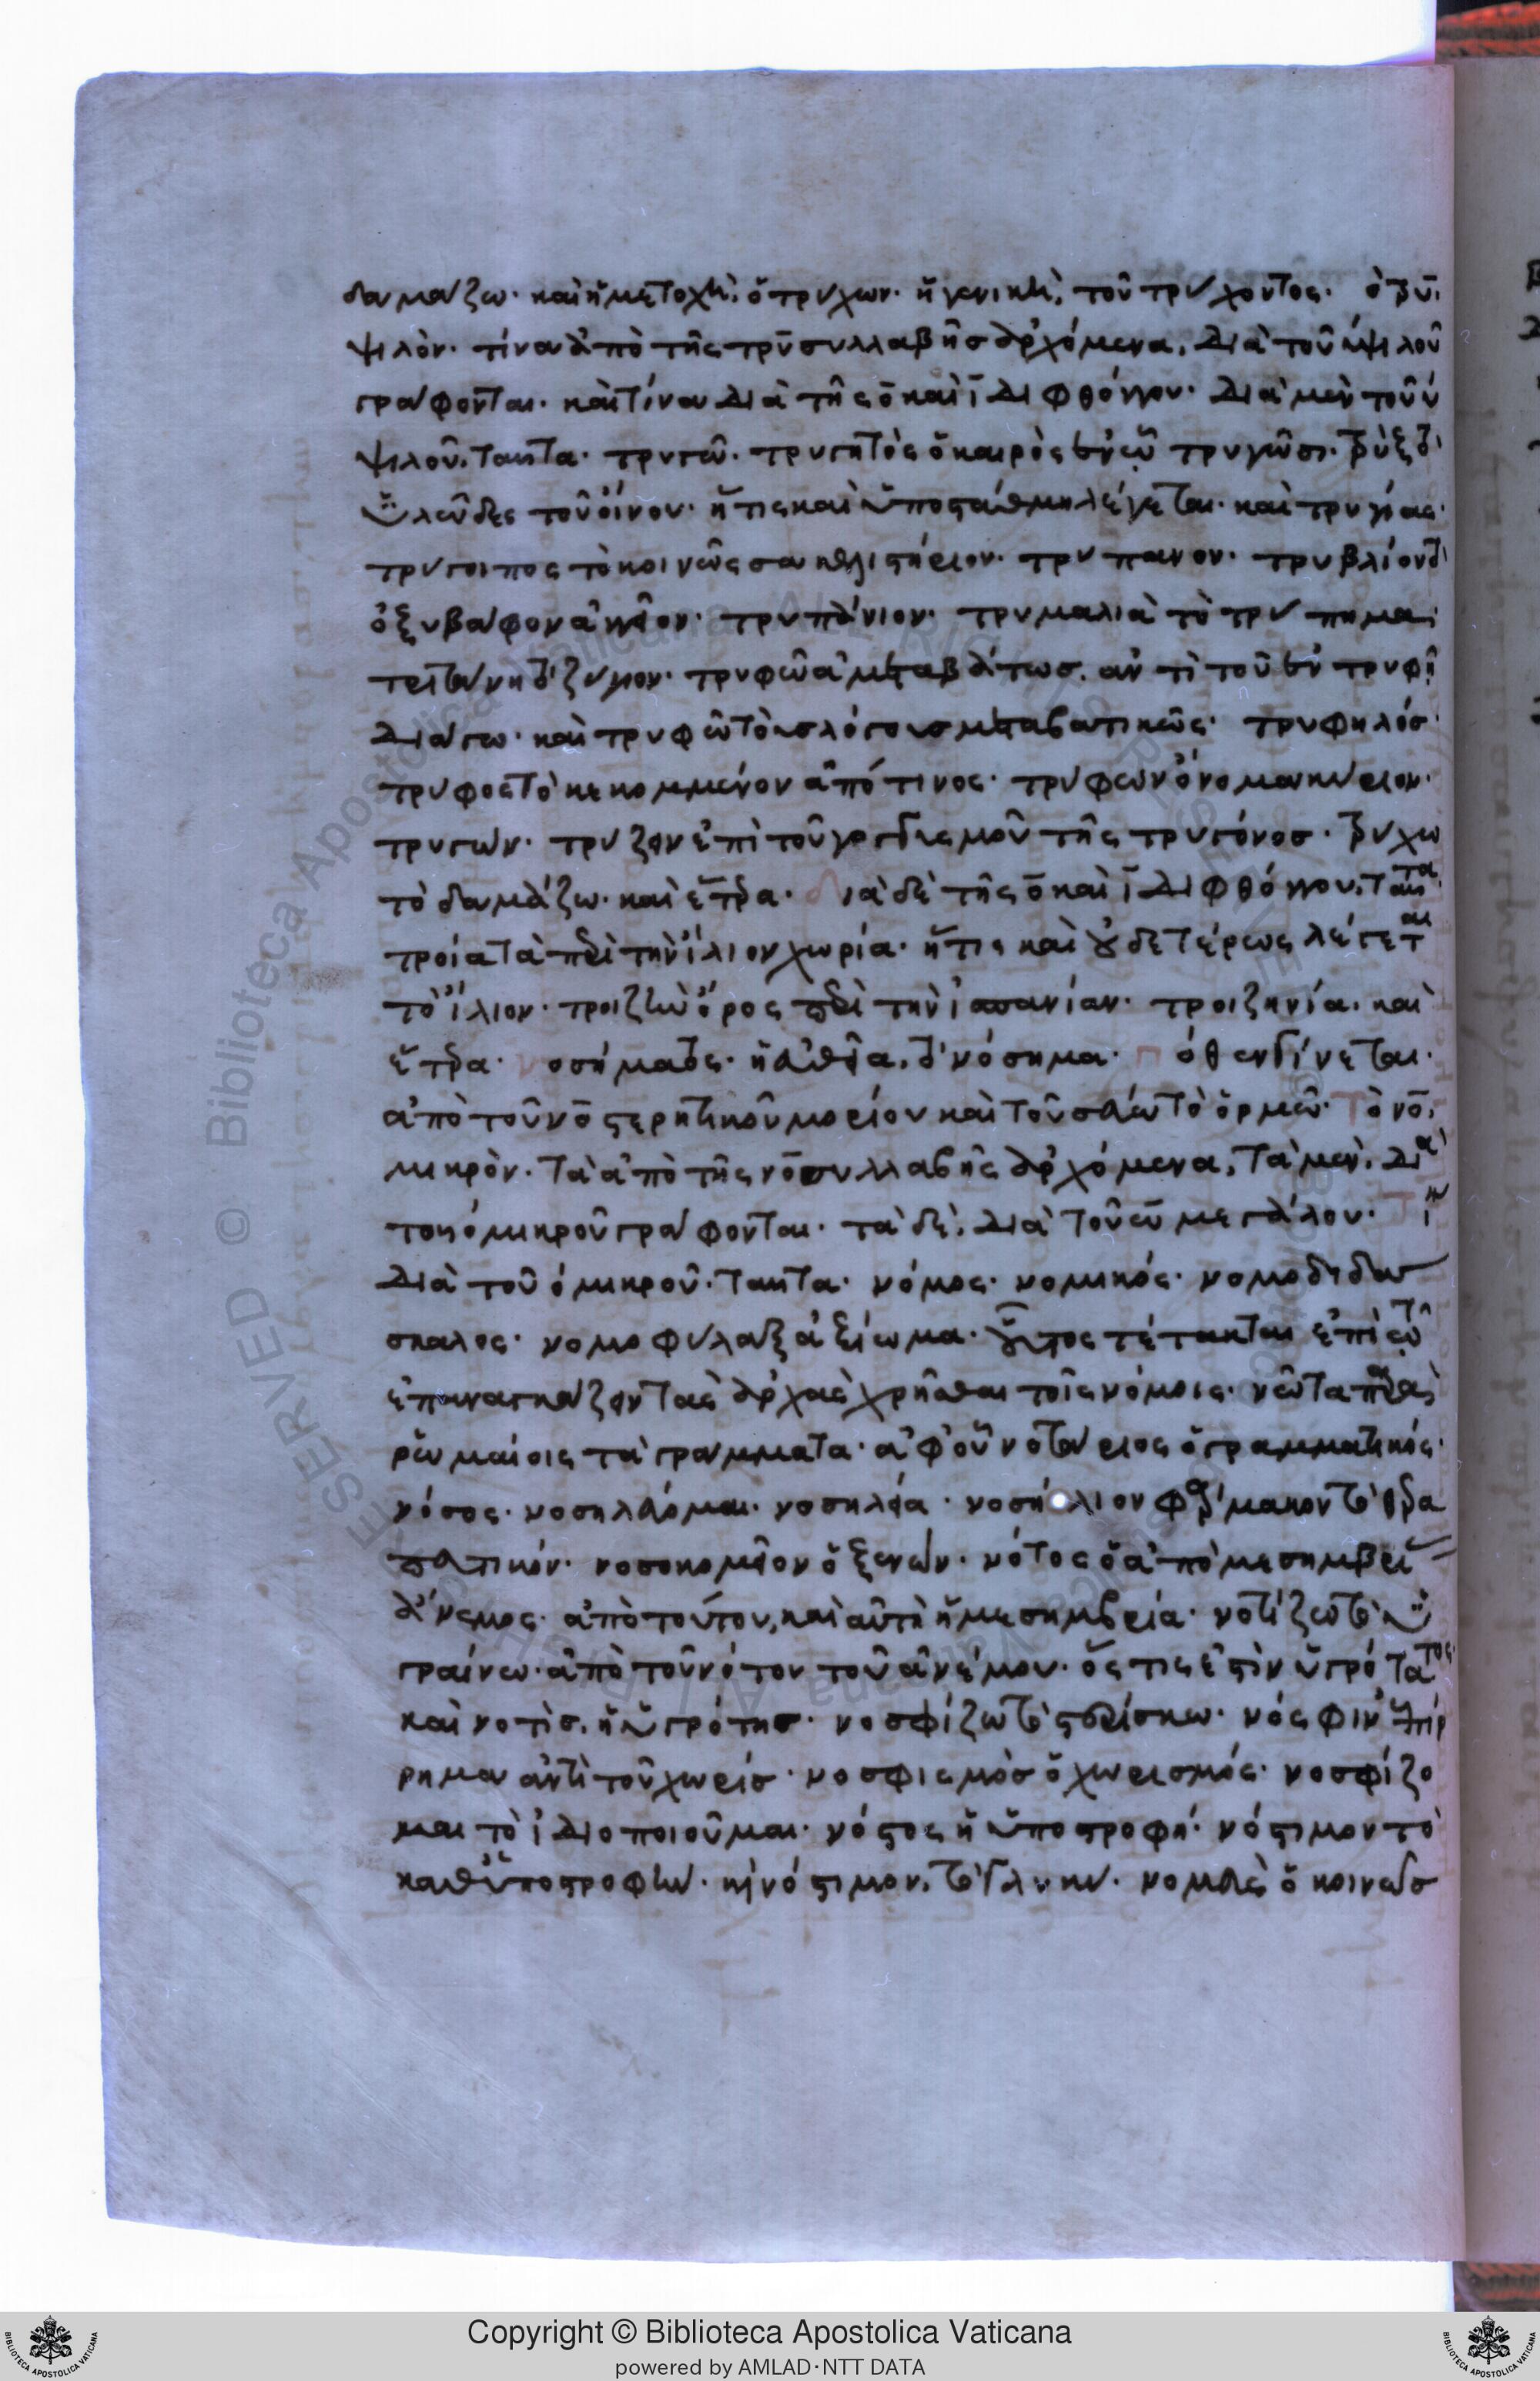 δαμάζω· καὶ ἡ μετοχὴ, ὁ τρύχων· ἡ γενικὴ, τοῦ τρύχοντος·
ψιλὸν· τίνα ἀπὸ τῆς τρῡ συλλαβῆς ἀρχόμενα, διὰ τοῦ ῡ ψιλοῦ
γράφονται· καὶ τίνα διὰ τῆς ο̄ καὶ ῑ διφθόγγου· διὰ μὲν τοῦ ῡ
ψιλοῦ, ταῦτα· τρυγῶ· τρυγητὸς ὁ καιρὸς ἐν ᾧ τρυγῶσι·
ὑλῶδες τοῦ οἴνου· ἥτις καὶ ὑποστάθμη λέγεται· καὶ τρυγίας·
τρύγοιπος τὸ κοινῶς σακελιστήριον· τρύπανον· τρυβλίον
ὀξύβαφον ἀγγεῖον· τρυπάνιον· τρυμαλιὰ τὸ τρύπημα·
τρυτάνη ζύγιον· τρυφῶ ἀμεταβάτως, ἀντὶ τοῦ ἐν τρυφῇ
διάγω· καὶ τρυφῶ τοῖς λόγοις μεταβατικῶς· τρυφηλός·
τρύφος τὸ κεκομμένον ἀπό τινος· τρύφων ὄνομα κύριον·
τρυγών· τρύζειν ἐπὶ τοῦ γογγυσμοῦ τῆς τρυγόνος· τρύχω
τὸ δαμάζω· καὶ ἕτερα· διὰ δὲ τῆς ο̄ καὶ ῑ διφθόγγου, ταῦτα·
τροία τὰ περὶ τὴν ἴλιον χωρία· ἥτις καὶ οὐδετέρως λέγεται
τὸ ἴλιον· τροιζὴν ὄρος περὶ τὴν ἱσπανίαν· τροιζηνία· καὶ
ἕτερα· νοσήματος· ἡ εὐθεῖα, τὸ νόσημα· πόθεν γίνεται·
ἀπὸ τοῦ νο̄ στερητικοῦ μορίου καὶ τοῦ σεύω τὸ ὁρμῶ· Τὸ νο̄,
μικρὸν· τὰ ἀπὸ τῆς νο̄ συλλαβῆς ἀρχόμενα, τὰ μὲν, διὰ
τοῦ ὀ μικροῦ γράφονται· τὰ δὲ, διὰ τοῦ ω̄ μεγάλου·
διὰ τοῦ ὀ μικροῦ, ταῦτα· νόμος· νομικός· νομοδιδά
σκαλος· νομοφύλαξ ἀξίωμα· οὗτος τέτακται ἐπὶ τῷ
ἐπαναγκάζειν τὰς ἀρχὰς χρῆσθαι τοῖς νόμοις· νῶτα παρὰ
ῥωμαίοις τὰ γράμματα· ἀφ' οὗ νοτάριος ὁ γραμματικός·
νόσος· νοσηλεύομαι· νοσηλεία· νοσήλιον φάρμακον τὸ θερα
πευτικόν· νοσοκομεῖον ὁ ξενών· νότος ὁ ἀπὸ μεσημβρί
ἄνεμος· ἀπὸ τούτου, καὶ αὐτὴ ἡ μεσημβρία· νοτίζω τὸ ὑ
γραίνω· ἀπὸ τοῦ νότου τοῦ ἀνέμου· ὅς τις ἐστὶν ὑγρότατος·
καὶ νοτὶς, ἡ ὑγρότης· νοσφίζω τὸ στερίσκω· νόσφιν ἐπίρ
ρημα ἀντὶ τοῦ χωρίς· νοσφισμὸς ὁ χωρισμός· νοσφίζο
μαι τὸ ἰδιοποιοῦμαι· νόστος ἡ ὑποστροφή· νόστιμον τὸ
καθ' ὑποστροφὴν· καὶ νόστιμον, τὸ γλυκύ· νομεὺς ὁ κοινῶς